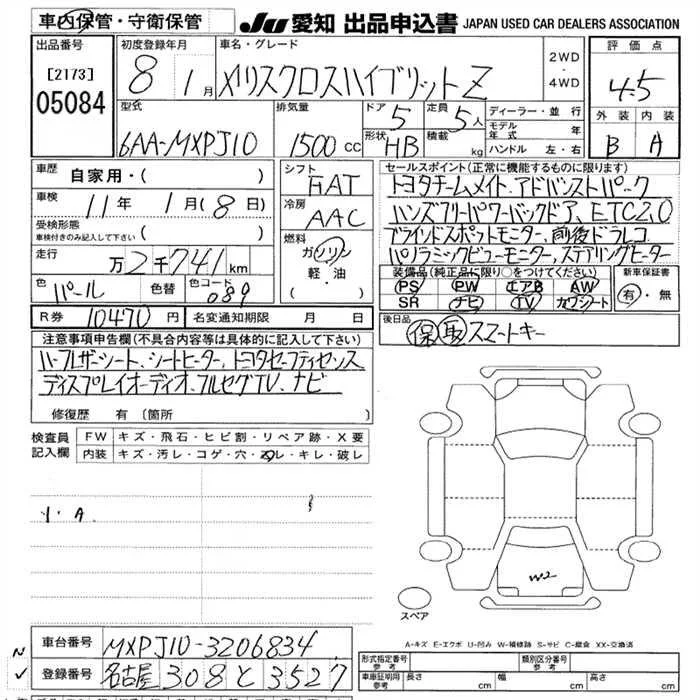 車内保管・守衛保管
JU 愛知 出品申込書 JAPAN USED CAR DEALERS ASSOCIATION
出品番号 初度登録年月 車名・グレード 2WD 評価点
[2173] 8 1月 メリスクロスハイブリットZ ・ 4.5
05084 4WD
型式 排気量 ドア 5 定員 5人 ディーラー・並行 外装 内装
6AA-MXPJ10 1500cc 形状 HB 積載 kg モデル年式 年 B A
ハンドル 左・右
車歴 自家用・( ) シフト FAT セールスポイント(正常に機能するものに限ります)
車検 11年 1月(8日) 冷房 AAC トヨタチームメイト、アドバンストパーク
受検形態 ハンズフリーパワーバックドア、ETC2.0
車検付きのみ記入して下さい ( ) 燃料 ガソリン ブラインドスポットモニター、前後ドラレコ
走行 万2千741km 軽・油 パノラミックビューモニター、ステアリングヒーター
色 パール 色替 色コード 089 ( ) 装備品(純正品に限り○をつけてください) 新車保証書
PS PW エアB AW 有・無
SR ナビ TV カワシート
R券 10470円 名変通知期限 月 日 後日品 保 取 スマートキー
注意事項申告欄(不具合内容等は具体的に記入して下さい)
ハーフレザーシート、シートヒーター、トヨタセーフティセンス
ディスプレイオーディオ、フルセグTV、ナビ
修復歴 有 (箇所 )
検査員記入欄 FW キズ・飛石・ヒビ割・リペア跡・X要
内装 キズ・汚レ・コゲ・穴・スレ・キレ・破レ
・A
W2
スペア
A-キズ E-エクボ U-凹み W-補修跡 S-サビ C-腐食 XX-交換済
車台番号 MXPJ10-3206834
登録番号 名古屋 308 と 3527
形式指定番号 参考 類別区分番号 参考
車庫証明用 参考 長さ cm 幅 cm 高さ cm